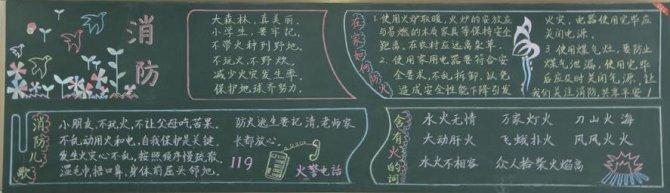 消防
大森林，真美丽，
小学生，要牢记，
不带火种到野地，
不玩火，不野炊，
减少火灾发生率，
保护地球齐努力。
在家如何防火
1、使用火炉取暖，火炉的安放应
与易燃的木质家具等保持安全
距离，在农村应远离柴草。
2、使用家用电器要符合安
全要求，不乱拆卸，以免
造成安全性能下降引发
火灾，电器使用完毕应
关闭电源。
3、使用煤气灶，要防止
煤气泄漏，使用完毕
后应及时关闭气源，让
我们关注消防，共享平安！
消防儿歌
小朋友，不玩火，不让父母吃苦果。
不乱动用火和电，自我保护是关键。
发生火灾心不乱，按照顺序慢疏散，
湿毛巾捂口鼻，身体前屈头邻地。
防火逃生要记清，老师家
长都放心。
119
火警电话
含有火的词
水火无情 万家灯火 刀山火海
大动肝火 飞蛾扑火 风风火火
水火不相容 众人拾柴火焰高